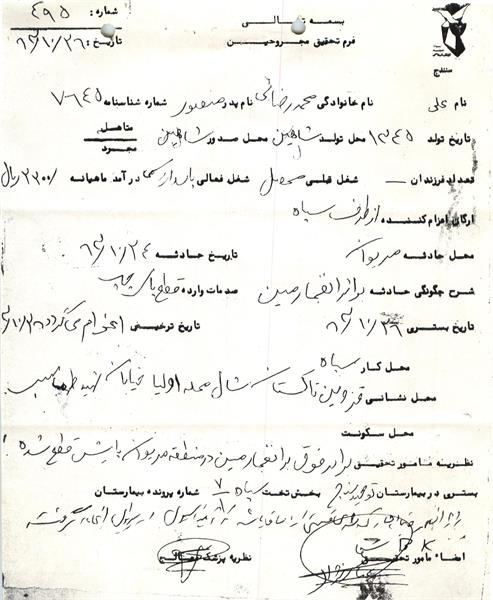 شماره: ۴۹۵
بسمه تعالی
تاریخ: ۶۲/۱۰/۲۶
فرم تحقیق مجروحین
سنندج
نام علی نام خانوادگی محمدرضائی نام پدر منصور شماره شناسنامه ۷۶۴۵
تاریخ تولد ۱۳۴۵ محل تولد شاهین محل صدور شاهین متاهل مجرد
تعداد فرزندان — شغل قبلی محصل شغل فعالی پاسدار در آمد ماهیانه ۲۳۰۰۰ ریال
ارگان اعزام کننده از طرف سپاه
محل حادثه مریوان تاریخ حادثه ۶۲/۱۰/۲۴
شرح چگونگی حادثه در اثر انفجار مین صدمات وارده قطع پای چپ
تاریخ بستری ۶۲/۱۰/۲۶ تاریخ ترخیص اعزام میگردد ۶۲/۱۰/۲۶
محل کار سپاه
محل نشانی قزوین تاکستان شال محله اولیا خیابان شهید
محل سکونت
نظریه مامور تحقیق برادر فوق بر انفجار مین در منطقه مریوان پایش قطع شده
بستری در بیمارستان توحید سنندج بخش تخت سپاه ۷ شماره پرونده بیمارستان
امضاء مامور تحقیق نظریه پزشک معالج